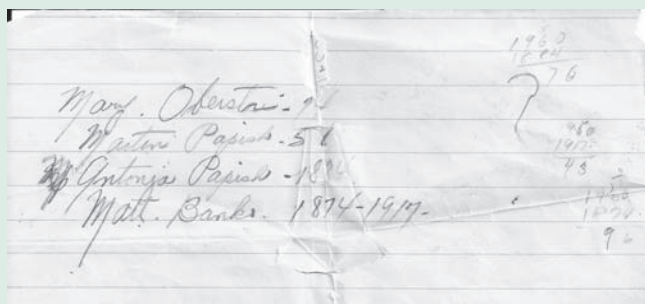 Mary. Oberstar - 76
Martin Papish - 51
Antonja Papish - 1874
Matt. Banks. 1874-1917-
1960
1884
76
1917
43
9